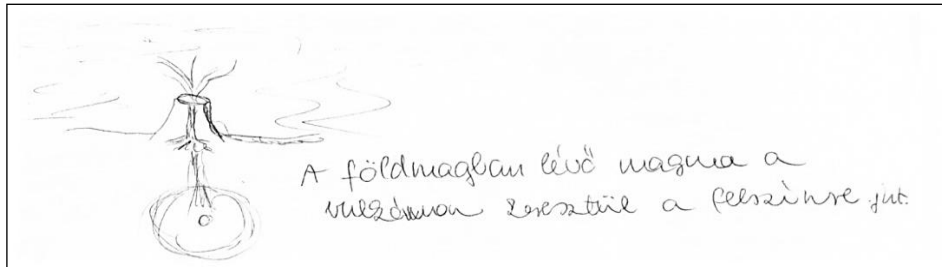 A földmagban lévő magma a
vulkánon keresztül a felszínre jut.